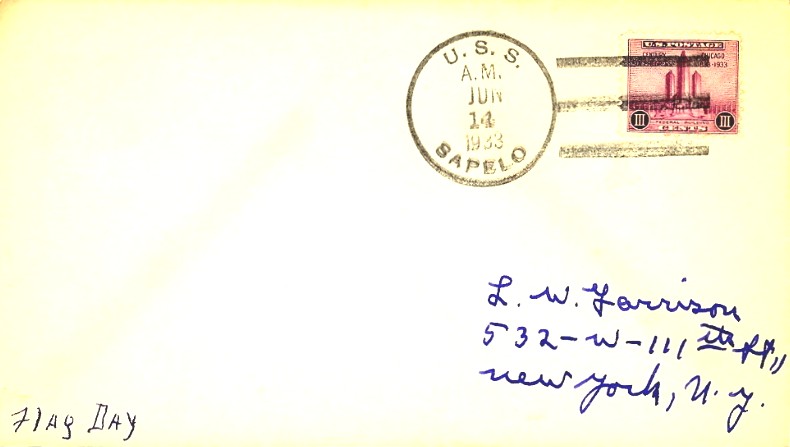 U.S.S.
A.M.
JUN
14
1933
SAPELO
U.S. POSTAGE
CENTURY CHICAGO
1933
FEDERAL BUILDING
III CENTS III
L. W. Garrison
532-W-111th St.,
New York, N.Y.
Flag Day